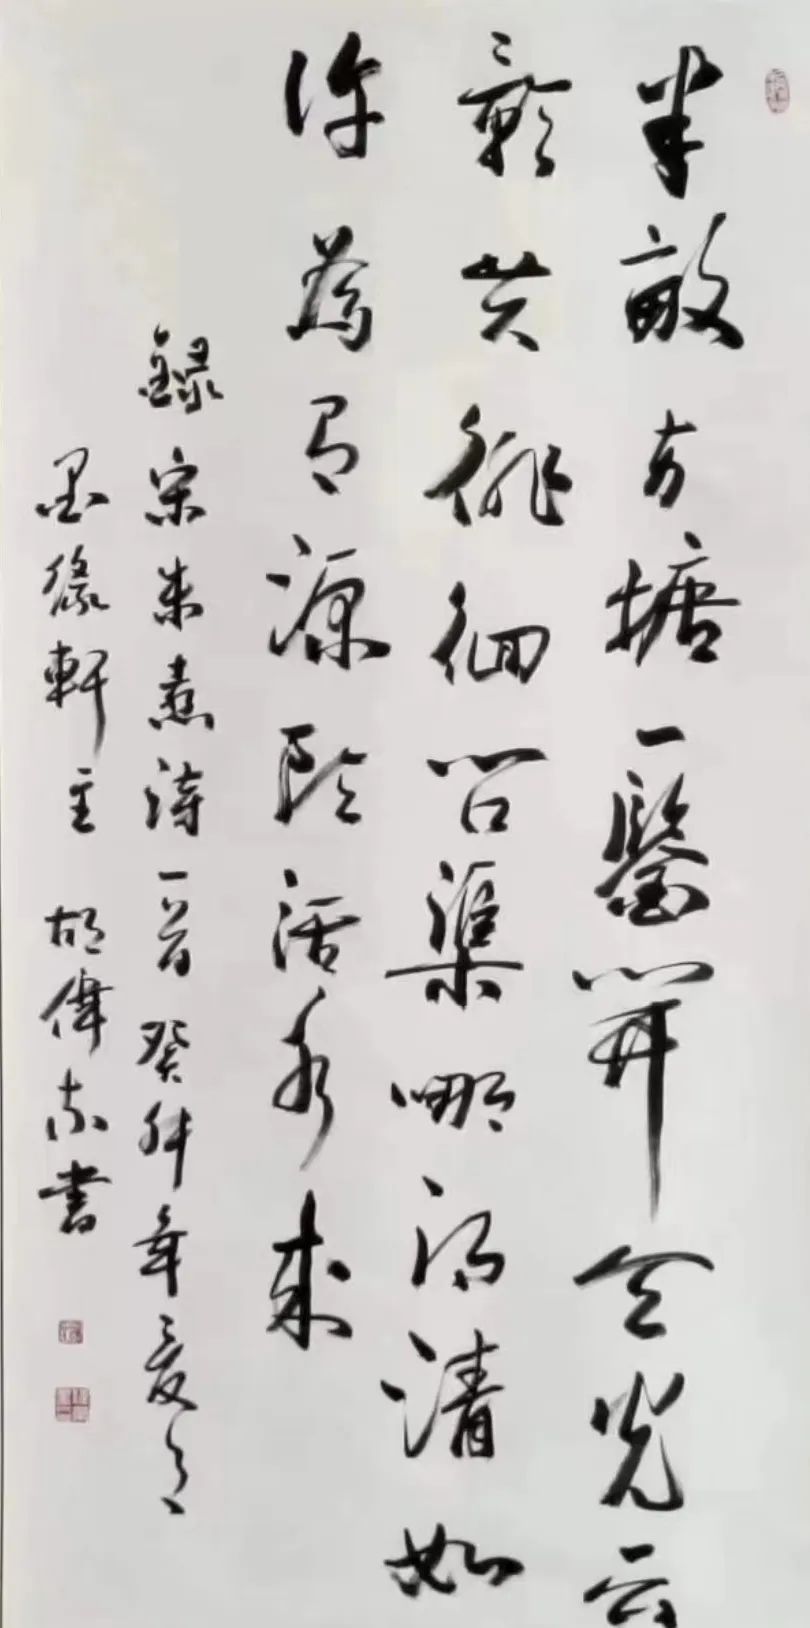 半畝方塘一鑒開天光云
影共徘徊問渠哪得清如
許為有源頭活水來
錄宋朱熹詩一首癸卯年夏月
墨緣軒主 胡偉書